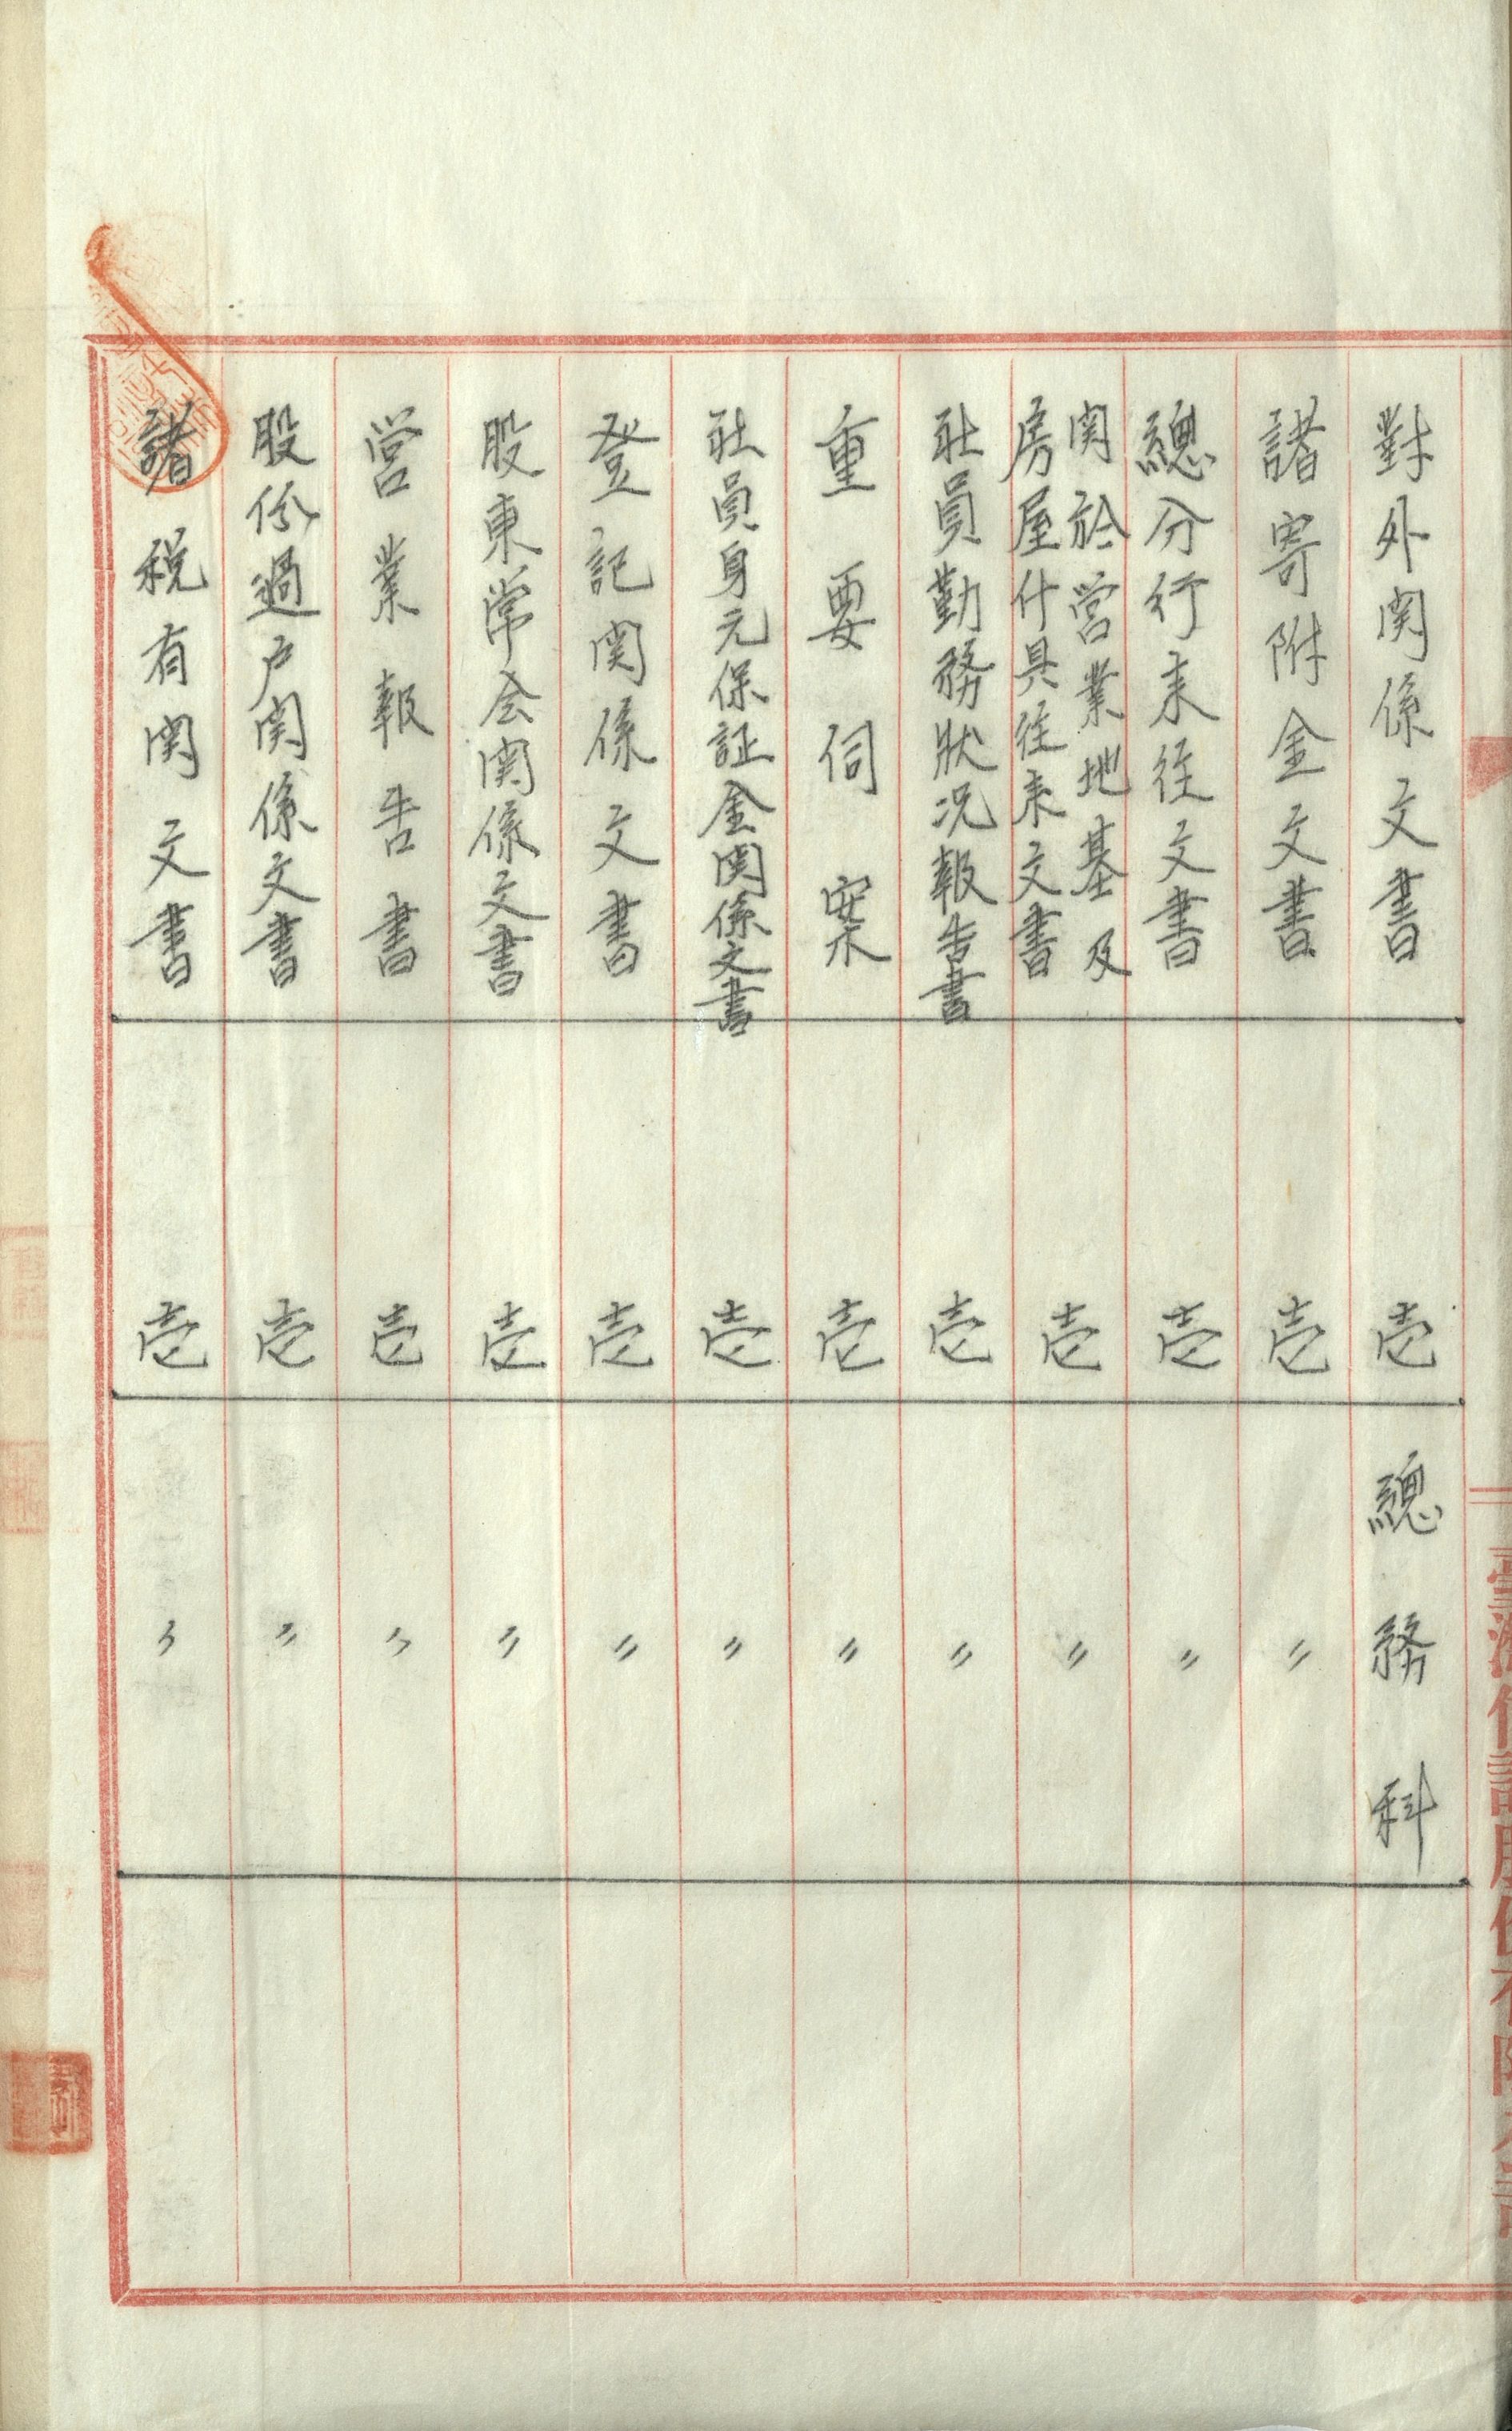 對外関係文書 壱 總務科
諸寄附金文書 壱 〃
總分行来往文書 壱 〃
関於営業地基及
房屋什具往来文書 壱 〃
社員勤務狀况報告書 壱 〃
重要伺案 壱 〃
社員身元保証金関係文書 壱 〃
登記関係文書 壱 〃
股東常会関係文書 壱 〃
営業報告書 壱 〃
股份過户関係文書 壱 〃
諸税有関文書 壱 〃